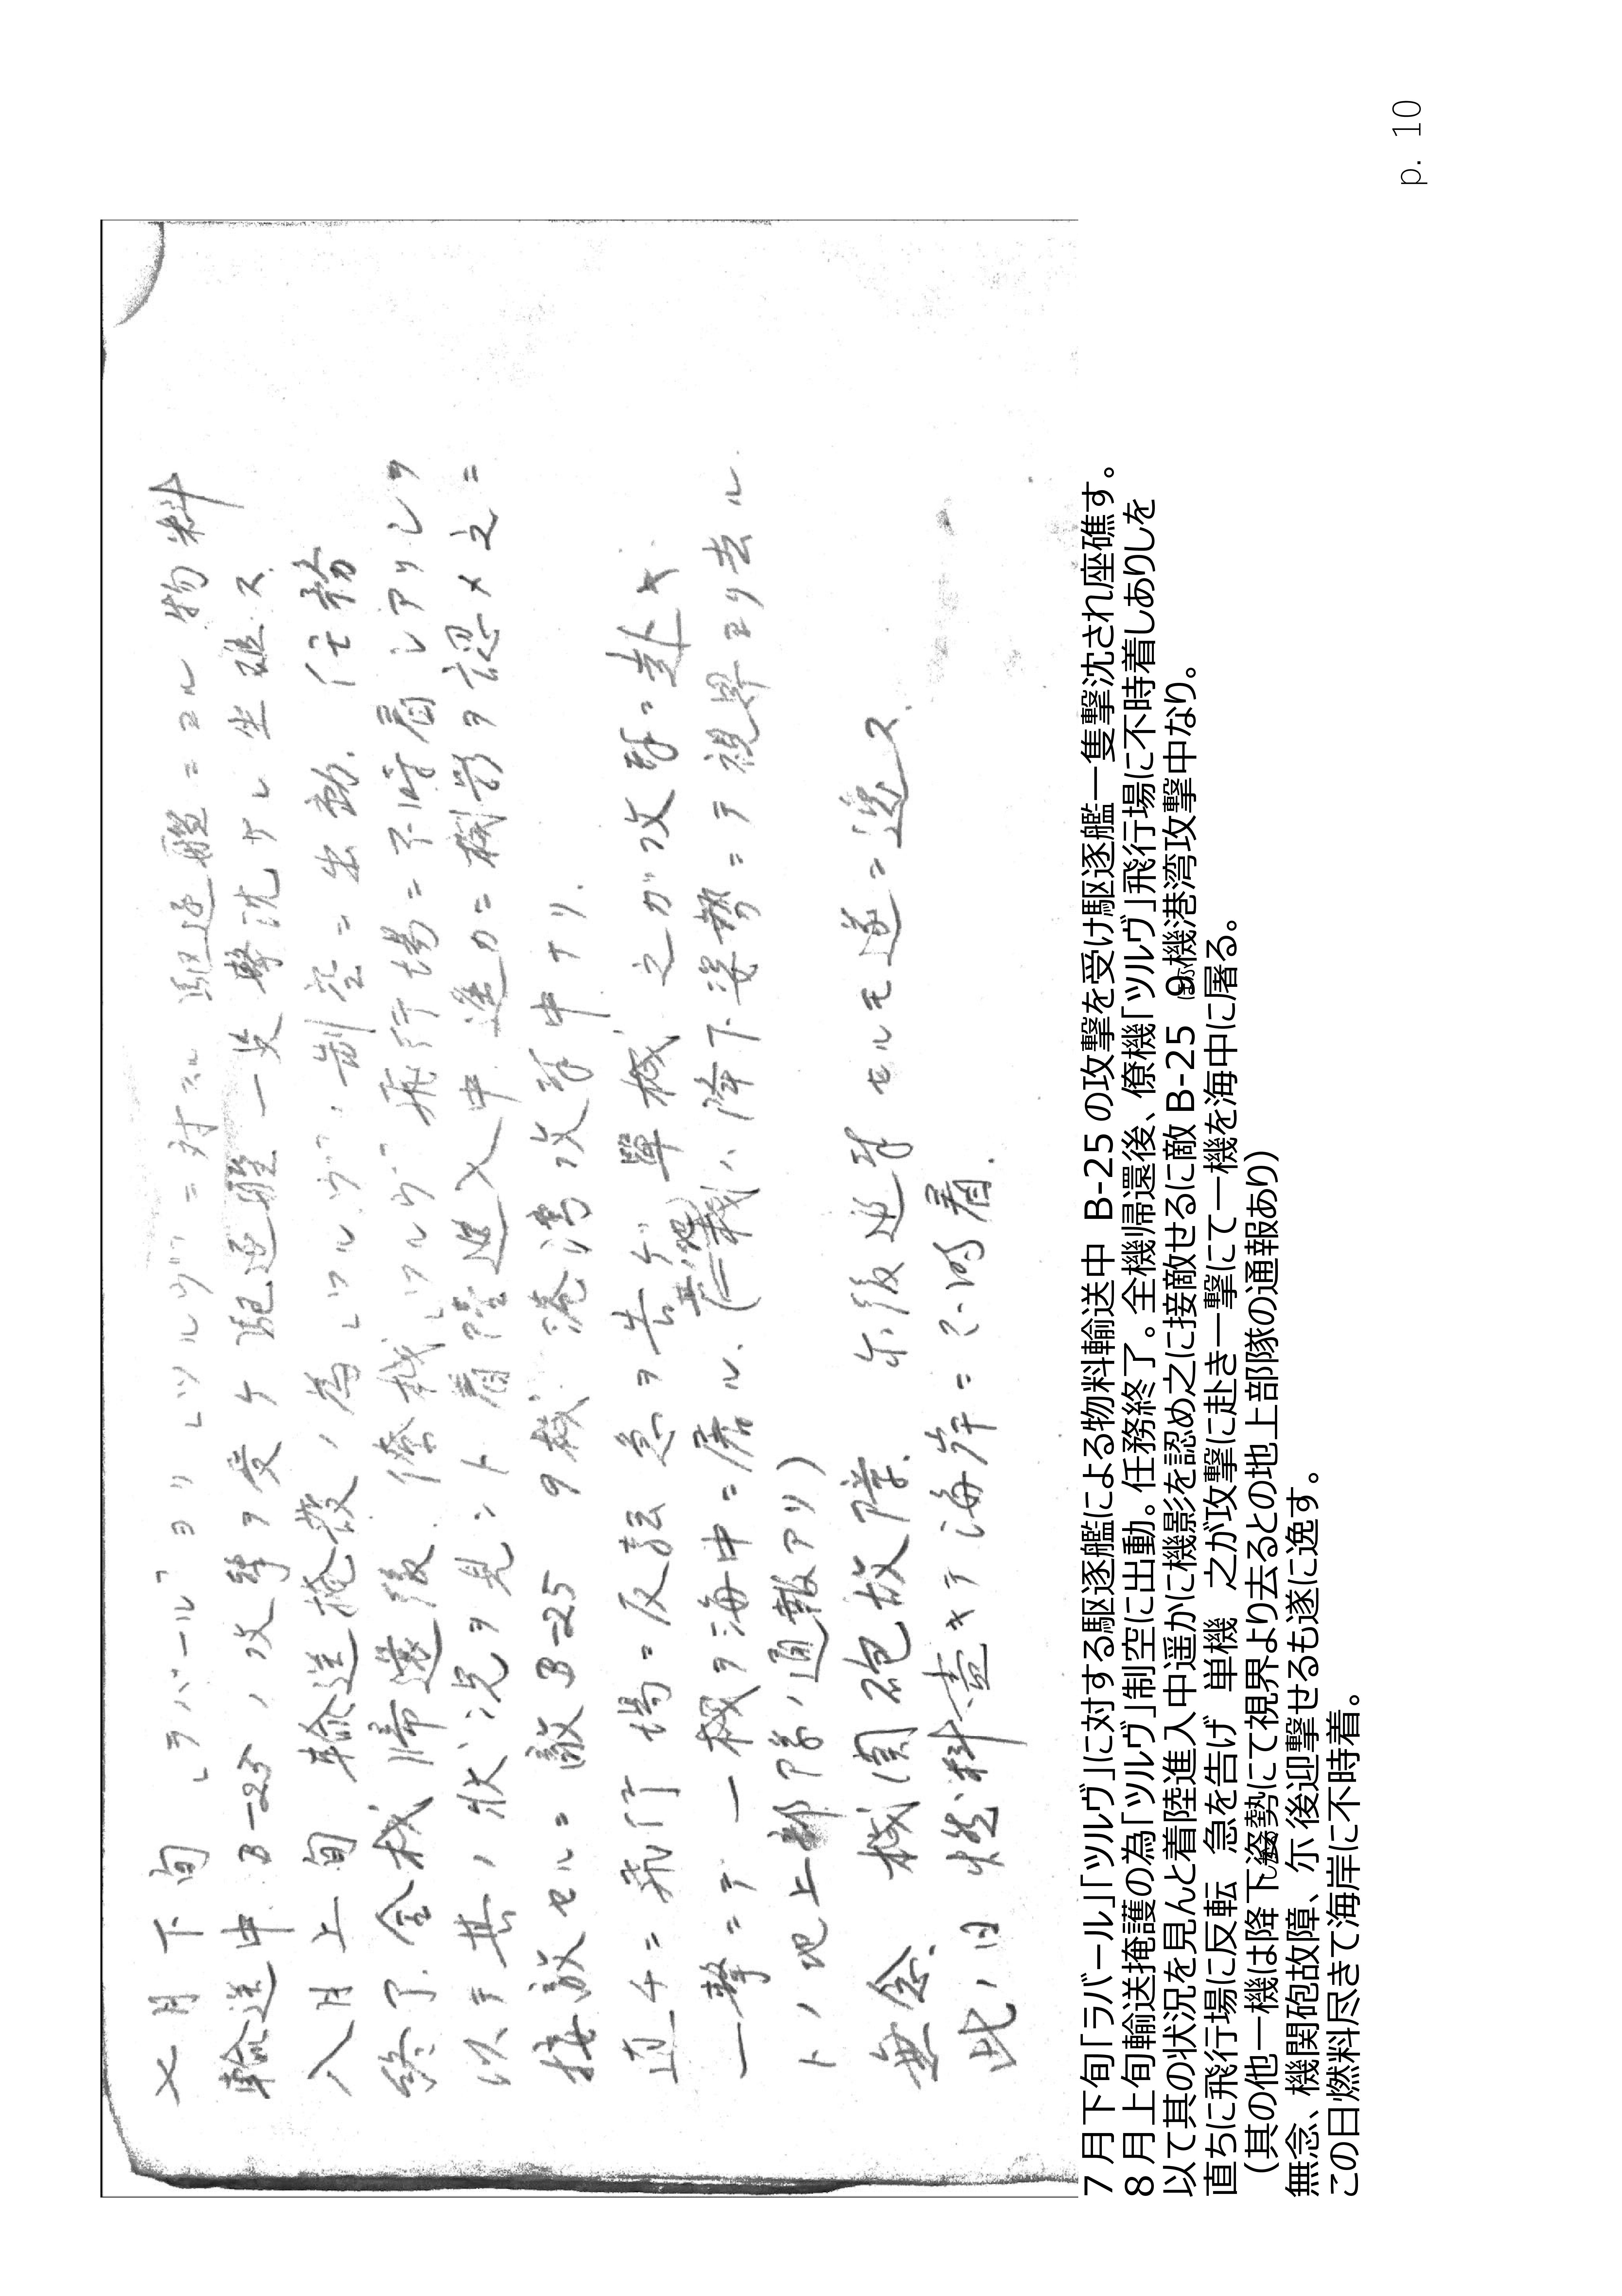 七月下旬「ラバール」ヨリ「ツルヴ」ニ対スル駆逐艦ニヨル物料
輸送中B-25ノ攻撃ヲ受ケ駆逐艦一隻撃沈サレ坐礁ス
八月上旬 輸送掩護ノ為「ツルヴ」制空ニ出動.任務
終了.全機帰還後.僚機「ツルヴ」飛行場ニ不時着シアリシヲ
以テ其ノ状況ヲ見ント着陸進入中遥カニ機影ヲ認メ之ニ
接敵セルニ 敵B-25 9機 港湾攻撃中ナリ.
直チニ飛行場ニ反転 急ヲ告ゲ 單機 之ガ攻撃ニ赴キ
一撃ニテ一機ヲ海中ニ屠ル.(其他一機ハ降下姿勢ニテ視界ヨリ去ル
トノ地上部隊ノ通報アリ)
無念.機関砲故障.尓後迎撃セルモ遂ニ逸ス.
此ノ日 燃料盡キテ海岸ニ不時着.
7月下旬「ラバール」「ツルヴ」に対する駆逐艦による物料輸送中 B-25の攻撃を受け駆逐艦一隻撃沈され座礁す。
8月上旬輸送掩護の為「ツルヴ」制空に出動。任務終了。全機帰還後、僚機「ツルヴ」飛行場に不時着しありしを
以て其の状況を見んと着陸進入中遥かに機影を認め之に接敵せるに敵B-25 9機港湾攻撃中なり。
直ちに飛行場に反転 急を告げ 単機 之が攻撃に赴き一撃にて一機を海中に屠る。
（其の他一機は降下姿勢にて視界より去るとの地上部隊の通報あり）
無念、機関砲故障、尓後迎撃せるも遂に逸す。
この日燃料尽きて海岸に不時着。
p. 10